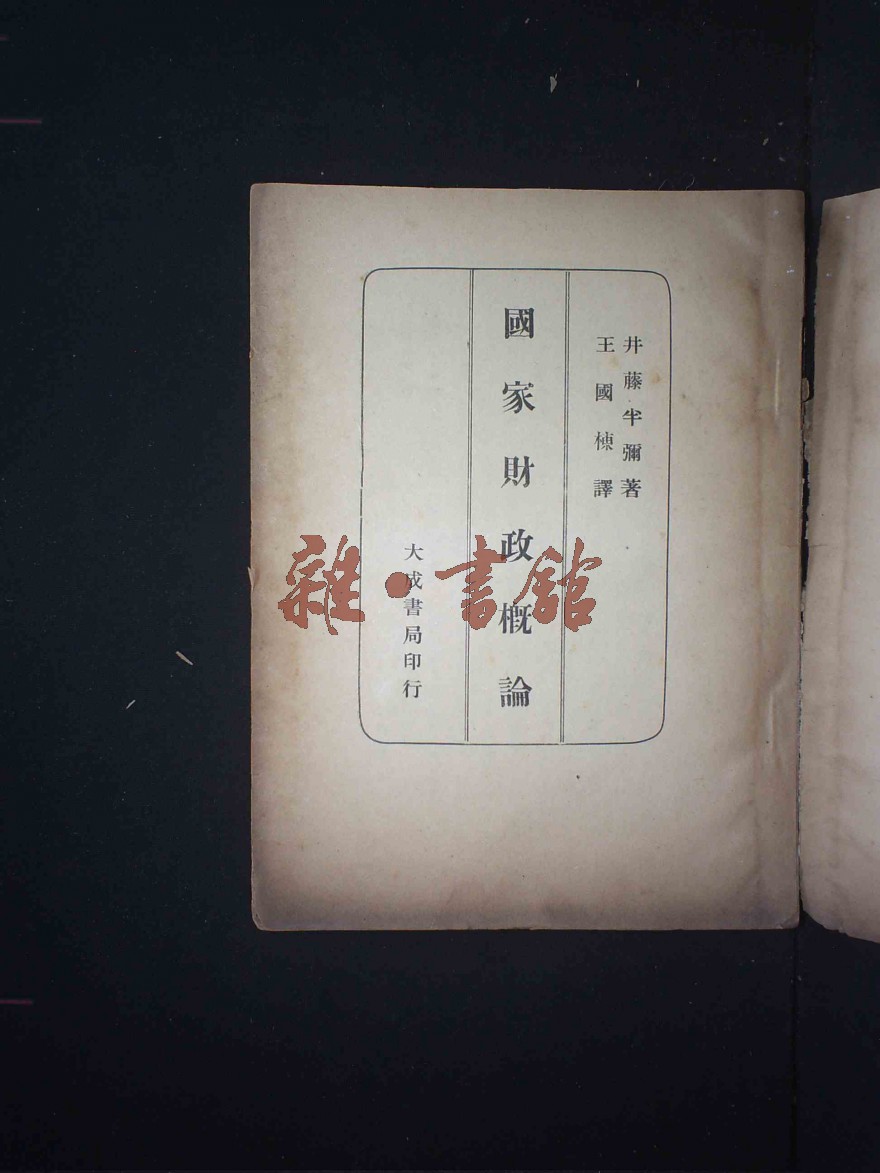 井藤半彌著
王國棟譯
國家財政概論
大成書局印行
雜·書館